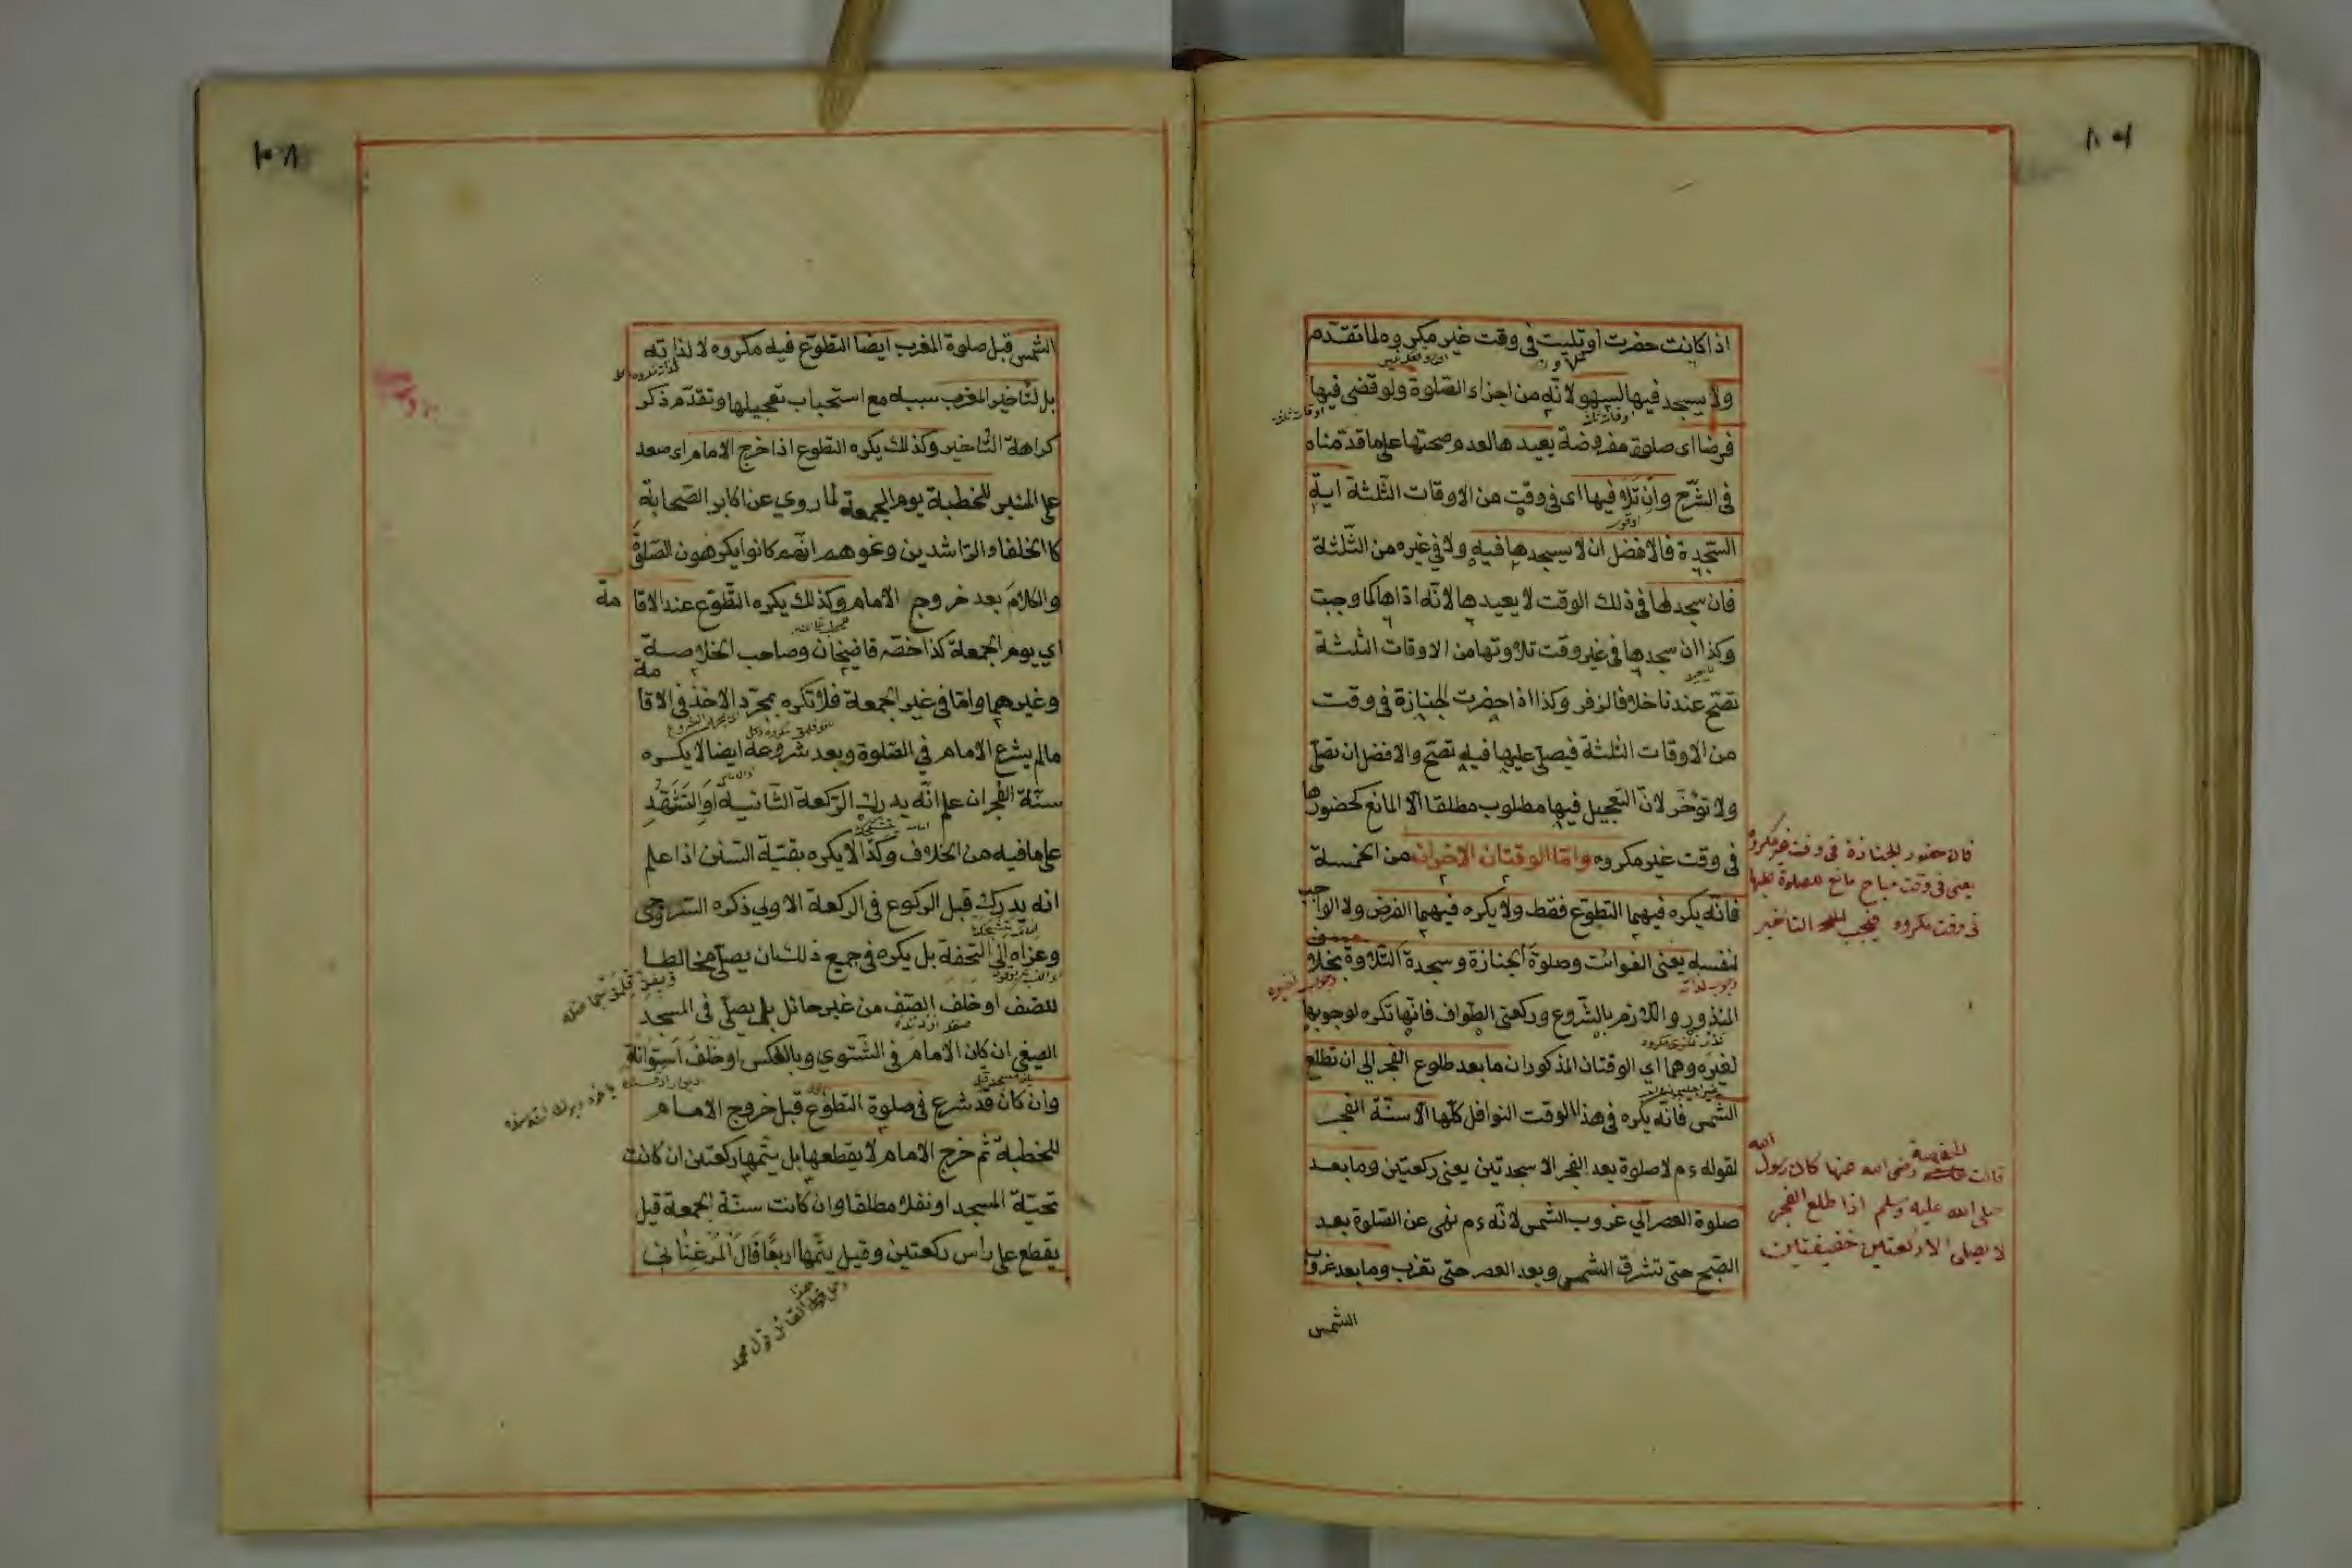 اذا كانت حضرت او تليت فى وقت غير مكروه لما تقدم
ولا يسجد فيها للسهو لانه من اجزاء الصلوة ولو قضى فيها
فرضا اى صلوة مفروضة يعيدها لعدم صحتها على ما قدمناه
فى الشرح وان تلا فيها اى فى وقت من الاوقات الثلثة اية
السجدة فالافضل ان لا يسجدها فيه ولا فى غيره من الثلثة
فان سجد لها فى ذلك الوقت لا يعيدها لانه اذاها كما وجبت
وكذا ان سجدها فى غير وقت تلاوتها من الاوقات الثلثة
تصح عندنا خلافا لزفر وكذا اذا حضرت الجنازة فى وقت
من الاوقات الثلثة فيصلى عليها فيه تصح والافضل ان تصلى
ولا تؤخر لان التعجيل فيها مطلوب مطلقا الا المانع كحضورها
فى وقت غير مكروه واما الوقتان الاخران من الخمسة
فانه يكره فيهما التطوع فقط ولا يكره فيهما الفرض ولا الواجب
لنفسه يعنى الفوائت وصلوة الجنازة وسجدة التلاوة بخلاف
المنذور واللازم بالشروع وركعتى الطواف فانها تكره لوجوبها
لغيره وهما اى الوقتان المذكوران ما بعد طلوع الفجر الى ان تطلع
الشمس فانه يكره فى هذا الوقت النوافل كلها الا سنة الفجر
لقوله ءم لا صلوة بعد الفجر الا سجدتين يعنى ركعتين وما بعد
صلوة العصر الى غروب الشمس لانه ءم نهى عن الصلوة بعد
الصبح حتى تشرق الشمس وبعد العصر حتى تغرب وما بعد غروب
الشمس
فان حضور الجنازة فى وقت غير مكروه
يعنى فى وقت مباح مانع للصلوة عليها
فى وقت مكروه فيجب التأخير
قالت حفصة رضى الله عنها كان رسول الله
صلى الله عليه وسلم اذا طلع الفجر
لا يصلى الا ركعتين خفيفتين
الشمس قبل صلوة المغرب ايضا التطوع فيه مكروه لا لذاته
بل لتأخير المغرب سببه مع استحباب تعجيلها وتقدم ذكر
كراهة التاخير وكذلك يكره التطوع اذا خرج الامام اى صعد
على المنبر للخطبة يوم الجمعة لما روي عن اكابر الصحابة
كالخلفاء الراشدين ونحوهم انهم كانوا يكرهون الصلوة
والكلام بعد خروج الامام وكذلك يكره التطوع عند الاقامة
اي يوم الجمعة كذا خصه قاضيخان وصاحب الخلاصة
وغيرهما واما فى غير الجمعة فلا تكره بمجرد الاخذ فى الاقامة
مالم يشرع الامام في الصلوة وبعد شروعه ايضا لا يكره
سنة الفجر ان علم انه يدرك الركعة الثانية او التشهد
على ما فيه من الخلاف وكذا لا يكره بقية السنن اذا علم
انه يدرك قبل الركوع فى الركعة الاولي ذكره السروجى
وعزاه الى التحفة بل يكره فى جميع ذلك ان يصلى مخالطا
للصف او خلف الصف من غير حائل بل يصلى فى المسجد
الصيفى ان كان الامام فى الشتوي وبالعكس او خلف استوانة
وان كان قد شرع فى صلوة التطوع قبل خروج الامام
للخطبة ثم خرج الامام لا يقطعها بل يتمها ركعتين ان كانت
تحية المسجد او نفلا مطلقا وان كانت سنة الجمعة قيل
يقطع على راس ركعتين وقيل يتمها اربعا قال المرغنانى